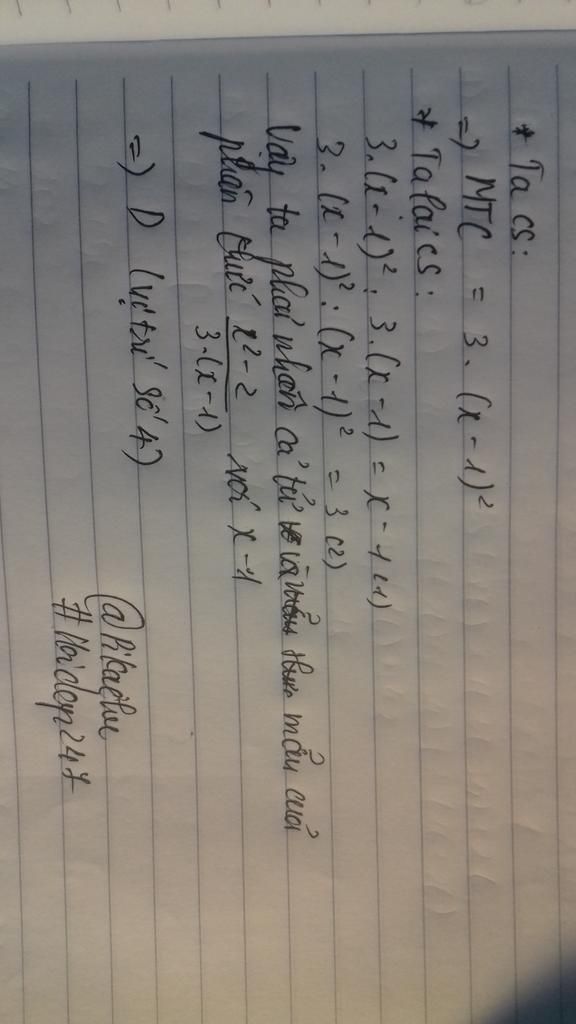 * Ta có:
=) MTC = 3. (x - 1)²
* Ta lại có:
3.(x - 1)² : 3.(x - 1) = x - 1 (1)
3. (x - 1)² : (x - 1)² = 3 (2)
Vậy ta phải nhân cả tử và mẫu của
phân thức x² - 2 / 3.(x - 1) với x - 1
=) D (vị trí số 4)
@Pikachu
#Hoidap247